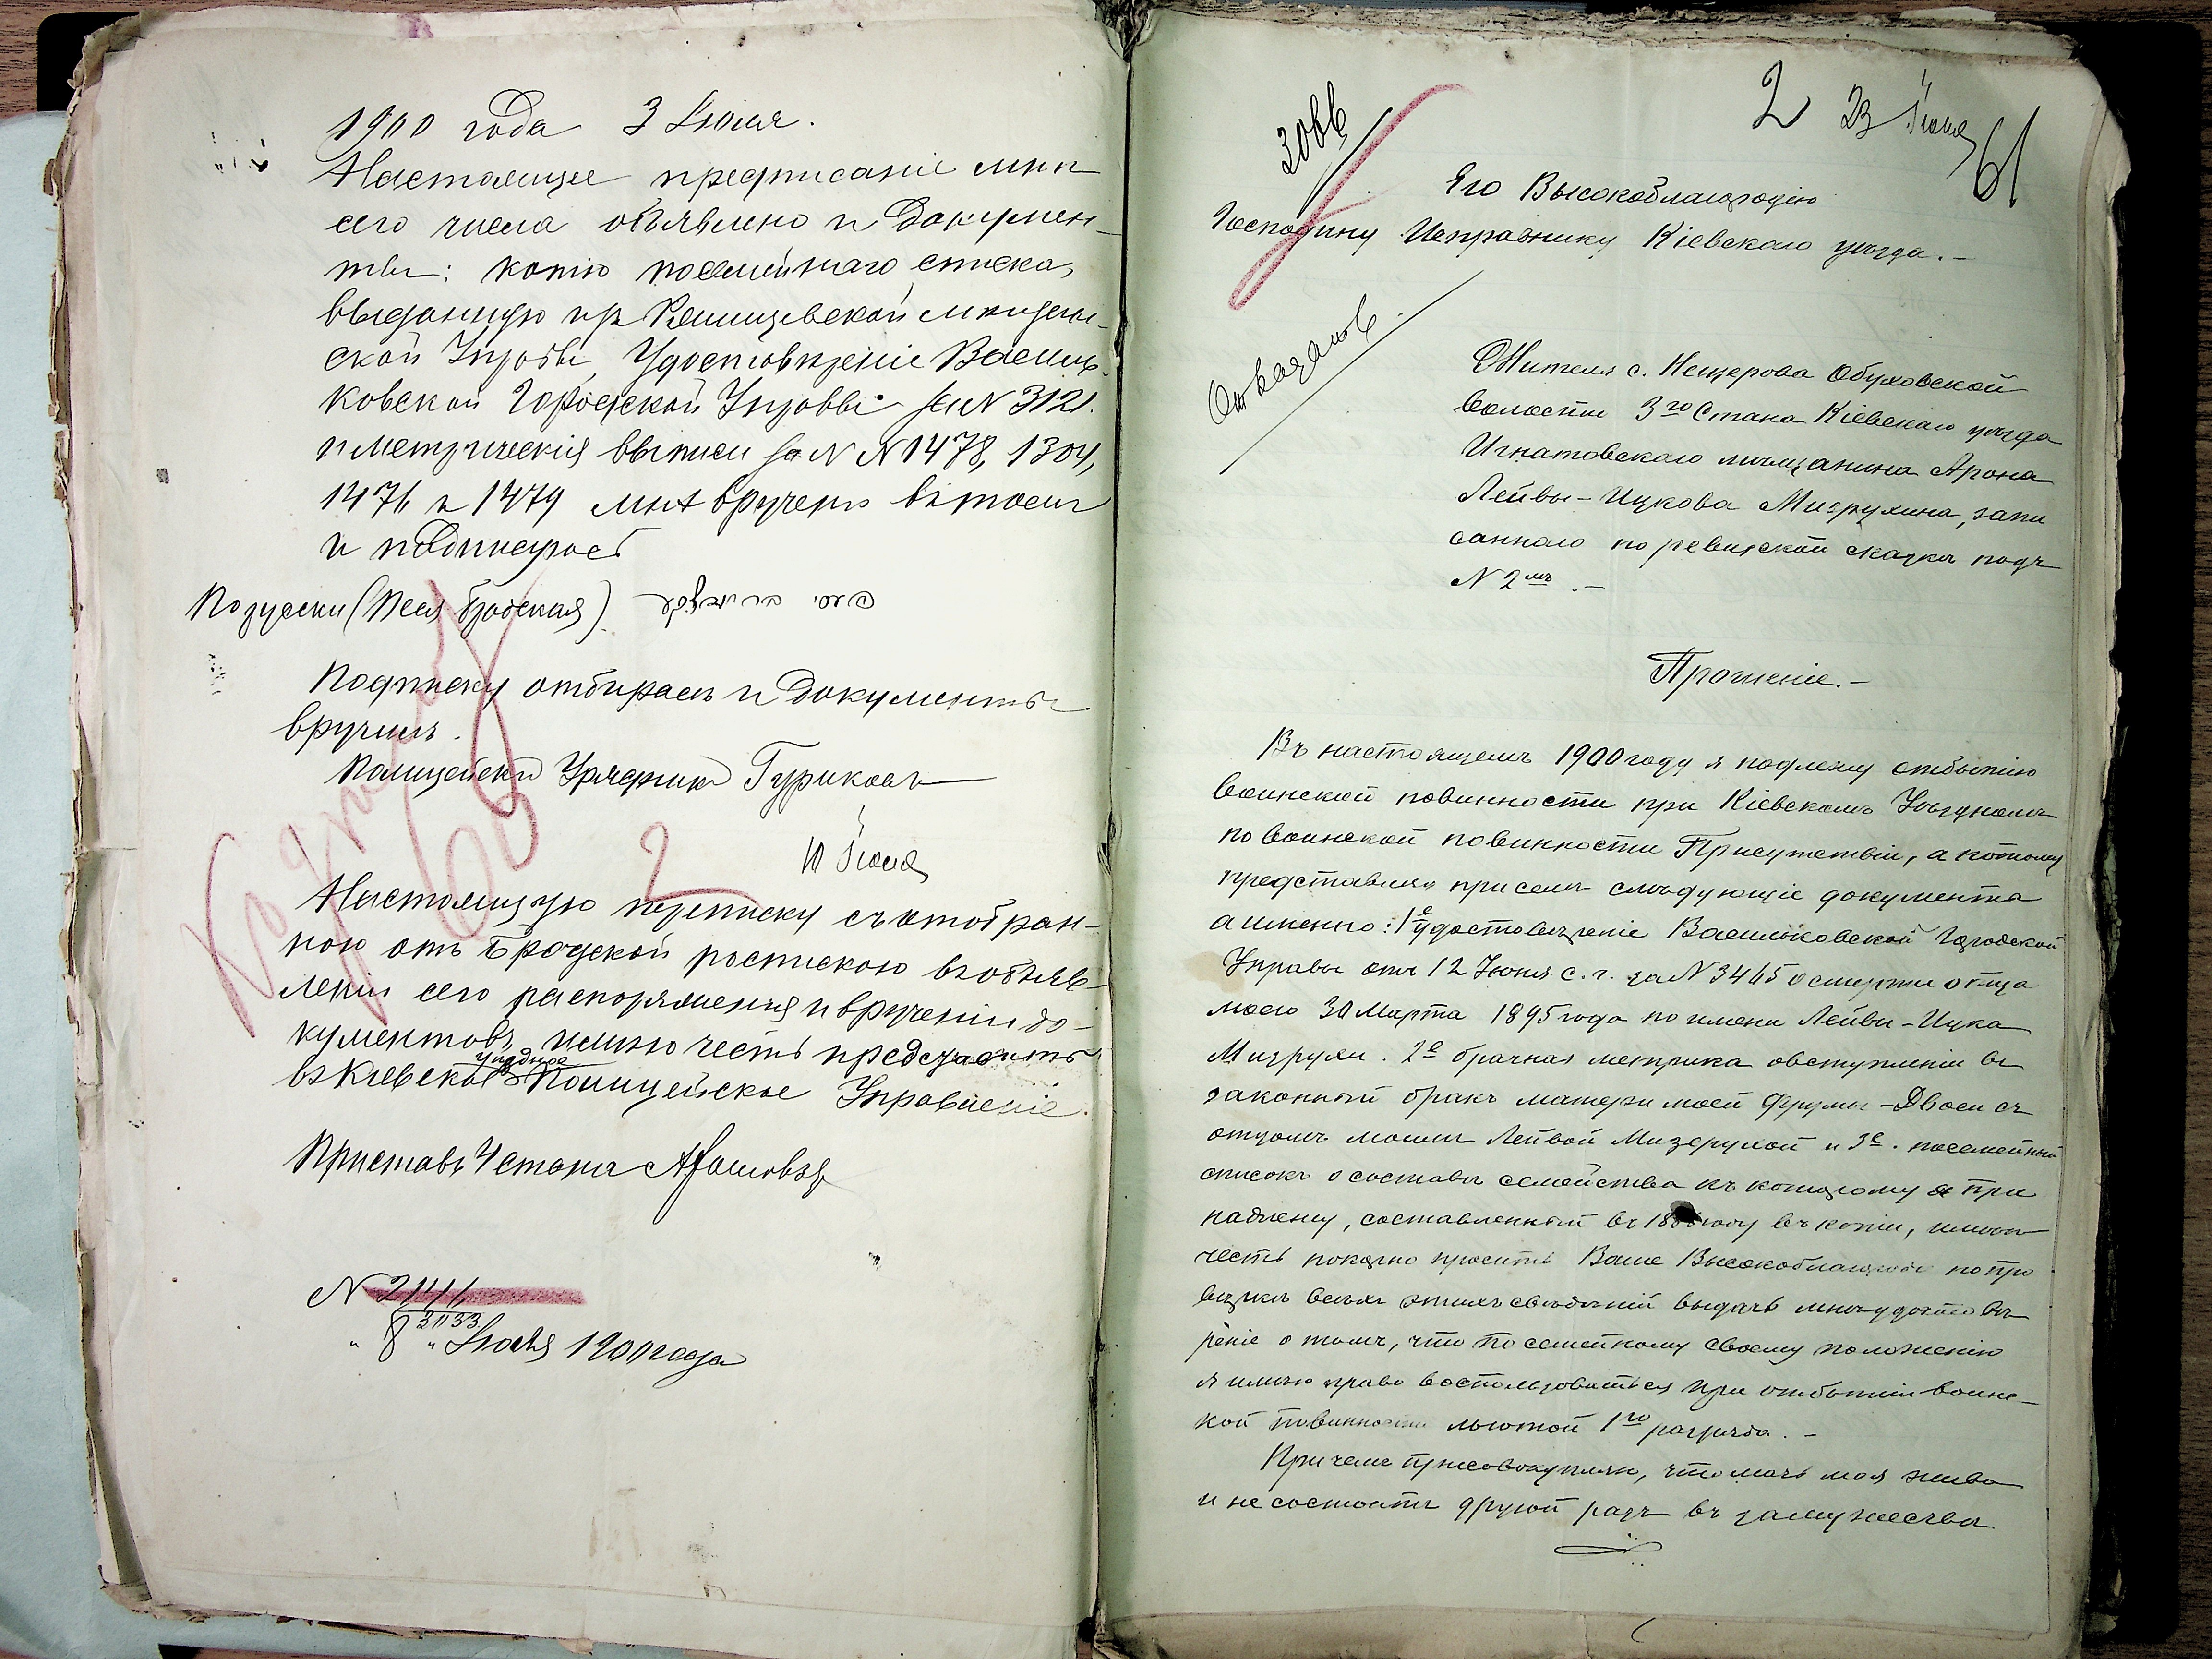 1900 года 3 Июня.
Настоящее предписаніе мнѣ
сего числа объявлено и докумен-
ты: копію посемейнаго списка,
выданную изъ Ржищевской мѣщан-
ской Управы, Удостовѣреніе Василь-
ковской Городской Управы за N 3121.
и метрическія выписи за N N 1478, 1304,
1476 и 1479 мнѣ вручены въ томъ
и подписуюсь
По русски (Песя Бродская)
Подписку отбиралъ и документы
вручилъ.
Полицейскій Урядникъ Гуриковъ
2
10 Іюня
Настоящую переписку съ отобран-
ною отъ Бродской роспискою въ объяв-
леніи сего распоряженія и врученіи до-
кументовъ, имѣю честь представить
въ Кіевское уѣздное Полицейское Управленіе.
Приставъ 4 стана
N
3033
" 8 " Іюня 1900 года
2 23 Іюня
61
Его Высокоблагородію
Господину Исправнику Кіевскаго уѣзда.-
Жителя с. Нещерова Обуховской
волости 3го Стана Кіевскаго уѣзда
Игнатовскаго мѣщанина Арона
Лейвы-Ицкова Мизрухина, запи
саннаго по ревизской сказкѣ подъ
N 2мъ.-
Прошеніе.-
Въ настоящемъ 1900 году я подлежу отбытію
воинской повинности при Кіевскомъ Уѣздномъ
по воинской повинности Присутствіи, а потому
представляя при семъ слѣдующіе документа
а именно: 1е удостовѣреніе Васильковской Городской
Управы отъ 12 Іюня с. г. за N 3465 о смерти отца
моего 30 Марта 1895 года по имени Лейвы-Ицка
Мизрухи. 2е брачная метрика о вступленіи въ
законный бракъ матери моей Фрумы-Двоси съ
отцомъ моимъ Лейвой Мизрухой и 3е. посемейный
списокъ о составѣ семейства къ которому я при
надлежу, составленный въ году въ копіи, имѣю
честь покорно просить Ваше Высокоблагородіе по про
вѣркѣ всѣхъ этихъ свѣдѣній выдать мнѣ удостовѣ
реніе о томъ, что по семейному своему положенію
я имѣю право воспользоваться при отбытіи воинс-
кой повинности льготой 1го разряда.-
Причемъ присовокупляю, что мать моя жива
и не состоитъ другой разъ въ замужествѣ